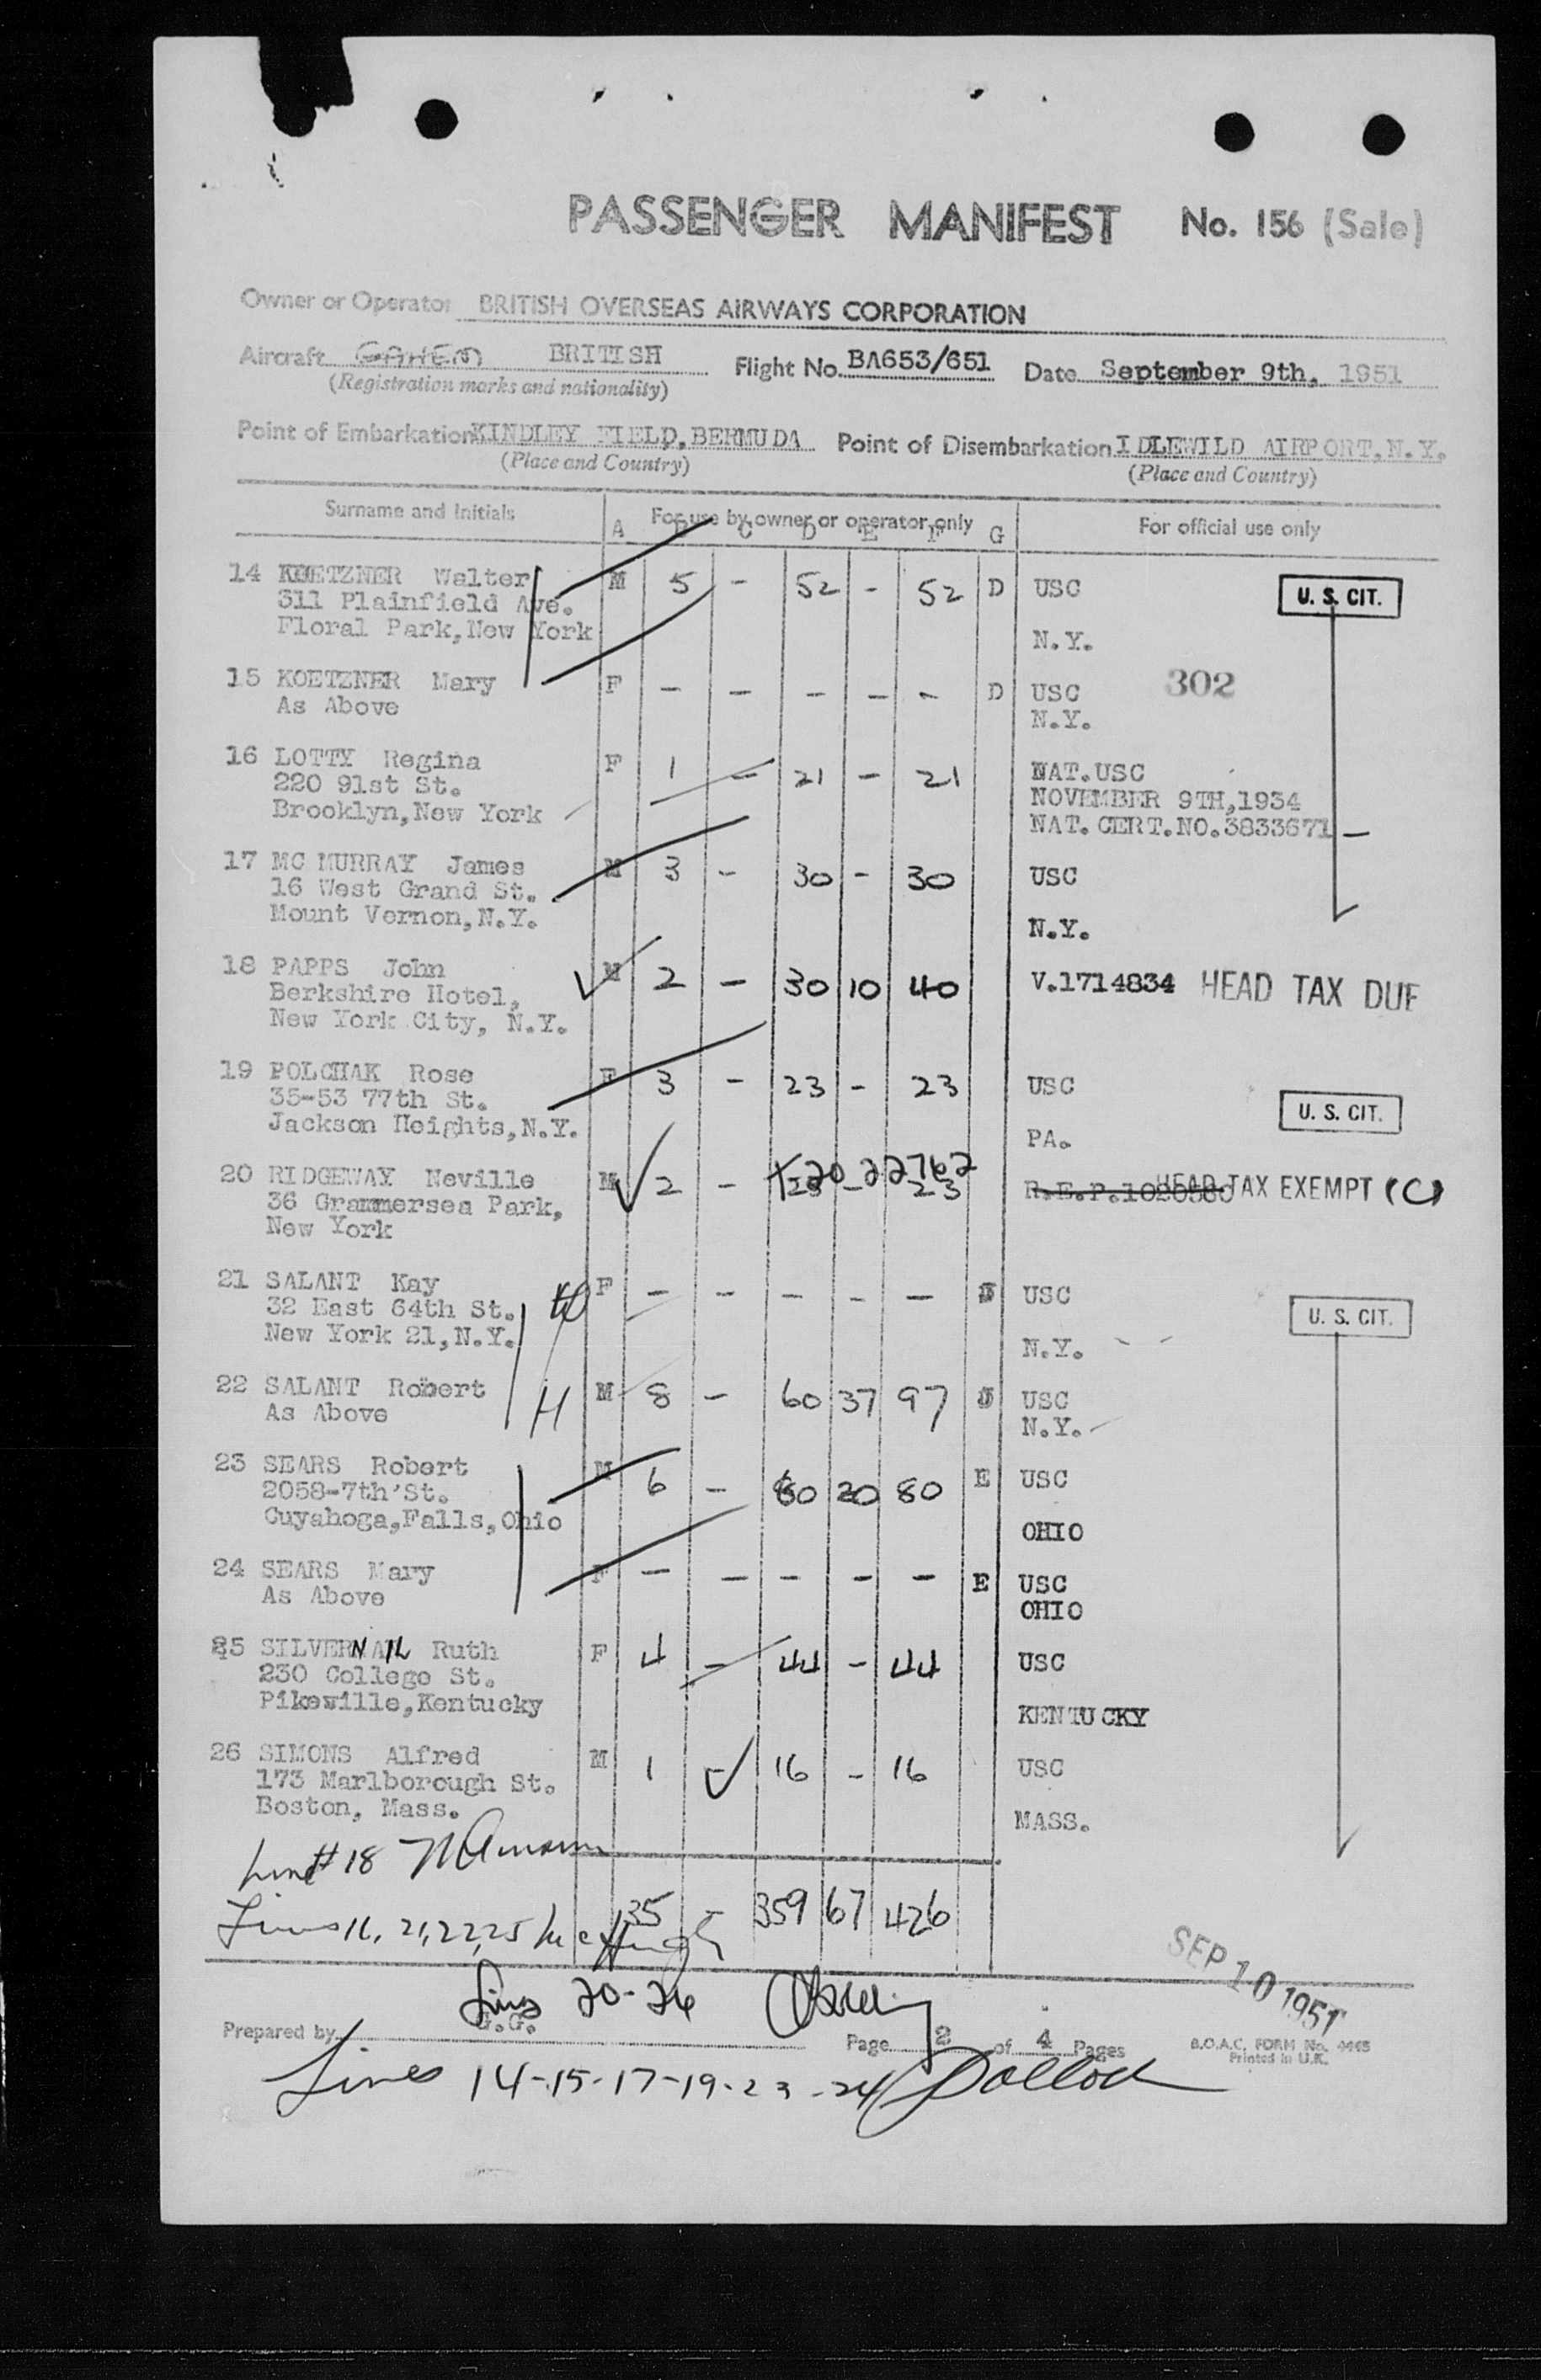 PASSENGER MANIFEST No. 156 (Sale)
Owner or Operator BRITISH OVERSEAS AIRWAYS CORPORATION
Aircraft BRITISH Flight No. BA653/651 Date September 9th, 1951
(Registration marks and nationality)
Point of Embarkation KINDLEY FIELD, BERMUDA Point of Disembarkation IDLEWILD AIRPORT, N.Y.
(Place and Country) (Place and Country)
Surname and Initials For use by owner or operator only For official use only
A B C D E F G
14 KOETZNER Walter M 5 - 52 - 52 D USC U. S. CIT.
311 Plainfield Ave.
Floral Park, New York N.Y.
15 KOETZNER Mary F - - - - - D USC 302
As Above N.Y.
16 LOTTY Regina F 1 - 21 - 21 NAT.USC
220 91st St. NOVEMBER 9TH,1934
Brooklyn, New York NAT. CERT.NO.3833671
17 MC MURRAY James M 3 - 30 - 30 USC
16 West Grand St.
Mount Vernon, N.Y. N.Y.
18 PAPPS John M 2 - 30 10 40 V.1714834 HEAD TAX DUE
Berkshire Hotel,
New York City, N.Y.
19 POLCHAK Rose F 3 - 23 - 23 USC
35-53 77th St. U. S. CIT.
Jackson Heights, N.Y. PA.
20 RIDGEWAY Neville M 2 - 23 - 23 HEAD TAX EXEMPT (C)
36 Grammersea Park,
New York
21 SALANT Kay W F - - - - - J USC
32 East 64th St. U. S. CIT.
New York 21, N.Y. N.Y.
22 SALANT Robert H M 8 - 60 37 97 J USC
As Above N.Y.
23 SEARS Robert M 6 - 60 20 80 E USC
2058-7th St.
Cuyahoga, Falls, Ohio OHIO
24 SEARS Mary F - - - - - E USC
As Above OHIO
25 SILVERNAIL Ruth F 4 - 44 - 44 USC
230 College St.
Pikeville, Kentucky KENTUCKY
26 SIMONS Alfred M 1 - 16 - 16 USC
173 Marlborough St.
Boston, Mass. MASS.
Line # 18
35 - 359 67 426
Lines 16, 21, 22, 25 McHugh
SEP 10 1951
Lines 20-26
G.G.
Prepared by Page 2 of 4 Pages B.O.A.C. FORM No. 4465
Printed in U.K.
Lines 14-15-17-19-23-24 Pollock